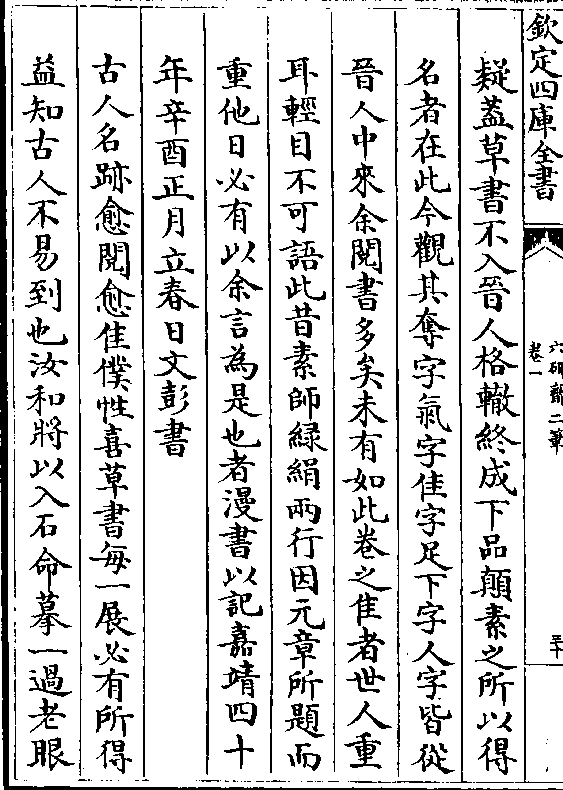 欽定四庫全書
六研齋二筆
卷一
三十
疑蓋草書不入晉人格轍終成下品顛素之所以得
名者在此今觀其奪字氣字佳字足下字人字皆從
晉人中來余閱書多矣未有如此卷之佳者世人重
耳輕目不可語此昔素師緑絹兩行因元章所題而
重他日必有以余言為是也者漫書以記嘉靖四十
年辛酉正月立春日文彭書
古人名跡愈閱愈佳僕性喜草書每一展必有所得
益知古人不易到也汝和將以入石命摹一過老眼